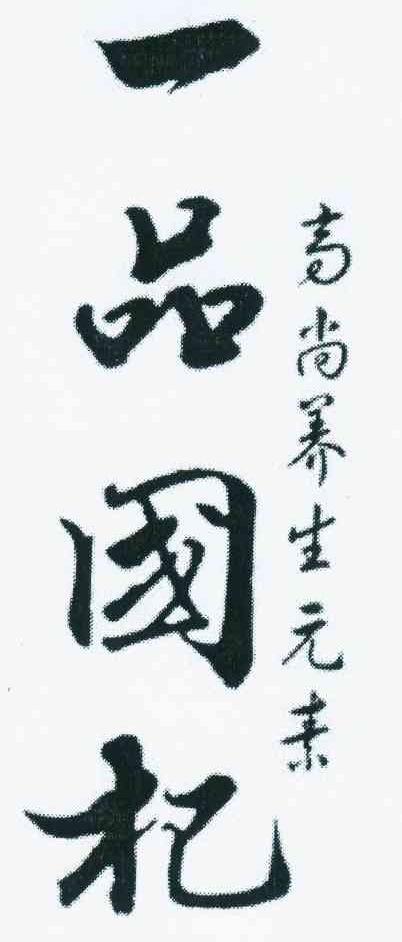 一品國杞
高尚养生元素